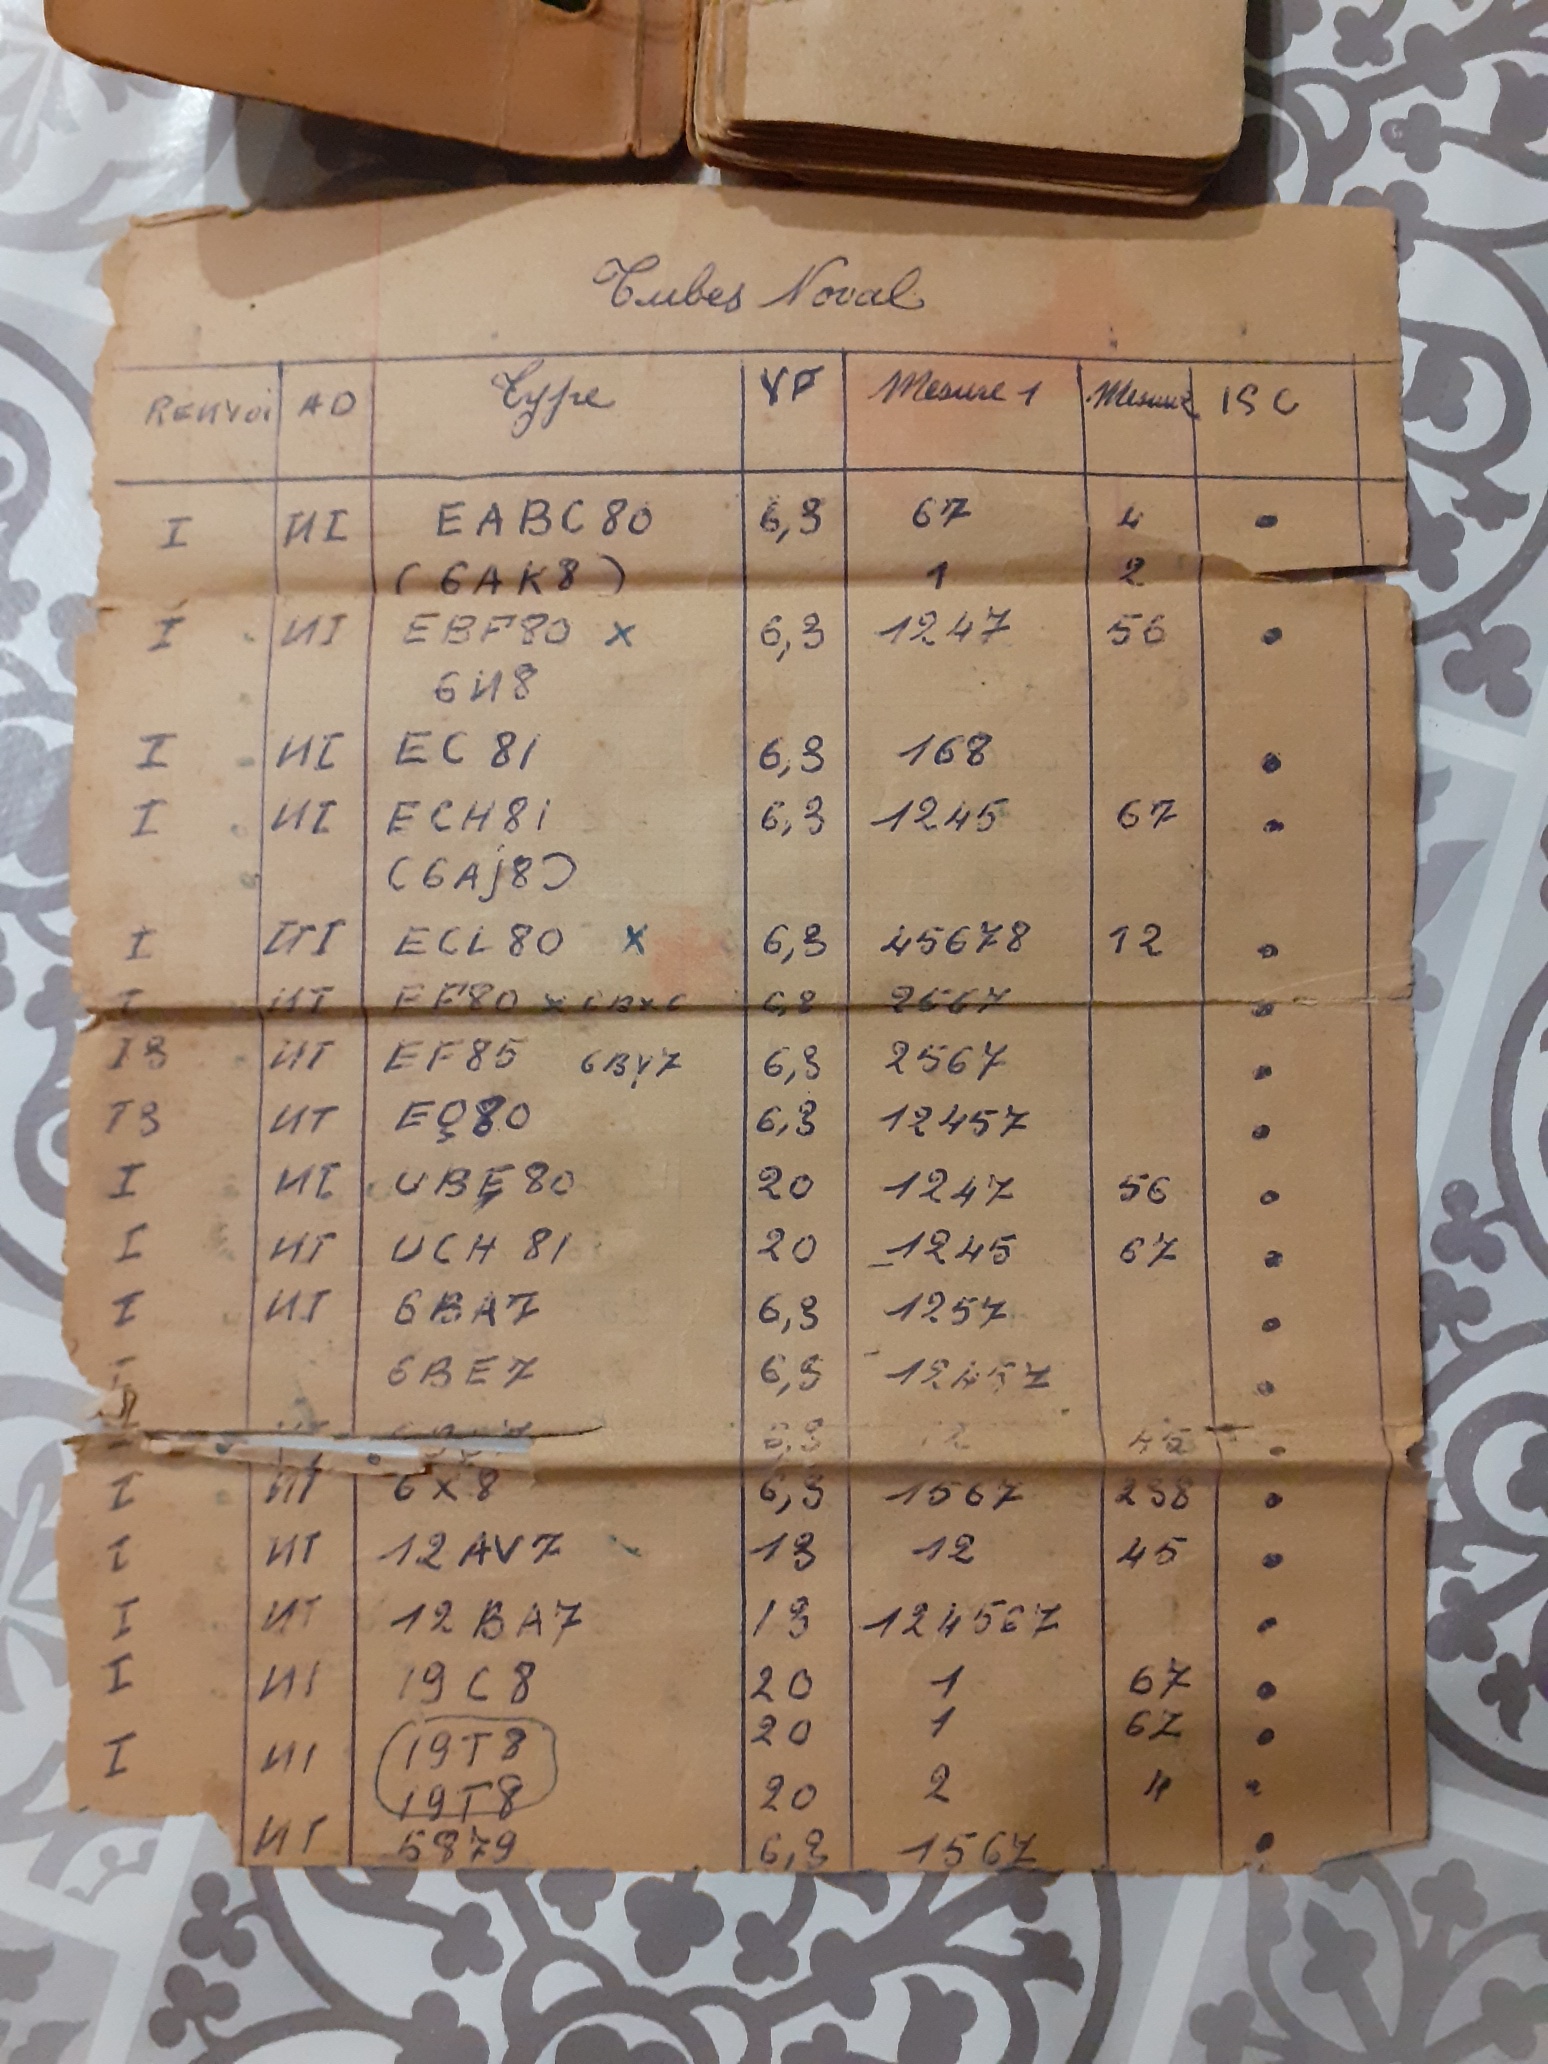 Tubes Noval
Renvoi AD Type VF Mesure 1 Mesure 2 ISC
I NI EABC80 6,3 67 4 •
(6AK8) 1 2
I NI EBF80 x 6,3 1247 56 •
6N8
I NI EC 81 6,3 168 •
I NI ECH81 6,3 1245 67 •
(6Aj8)
I NI ECL80 x 6,3 45678 12 •
I NI EF80 x 6BX6 6,3 2567 •
I3 NI EF85 6BY7 6,3 2567 •
I3 NI EQ80 6,3 12457 •
I NI UBF80 20 1247 56 •
I NI UCH 81 20 1245 67 •
I NI 6BA7 6,3 1257 •
I 6BE7 6,3 12457 •
6,3 12 45 •
I NI 6X8 6,3 1567 238 •
I NI 12AV7 13 12 45 •
I NI 12BA7 13 124567 •
I NI 19C8 20 1 67 •
I NI 19T8 20 1 67 •
19T8 20 2 4 •
NI 5879 6,3 1567 •